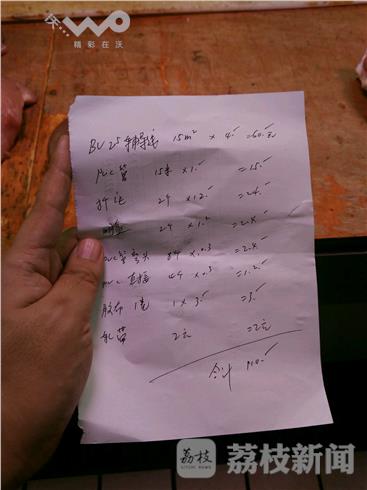 沃...WO
精彩在沃
BV 25 15m² × 4.- =60.元
PVC管 15米 ×1.- =15.-
2个 ×12.- =24.-
2个 ×1.2 =2.4
PVC管弯头 8个 ×0.3 =2.4
PVC直接 4个 ×0.3 =1.2
胶布 1卷 1×3.- =3.-
扎带 2元 =2元
合计 110.-
荔枝
荔枝新闻